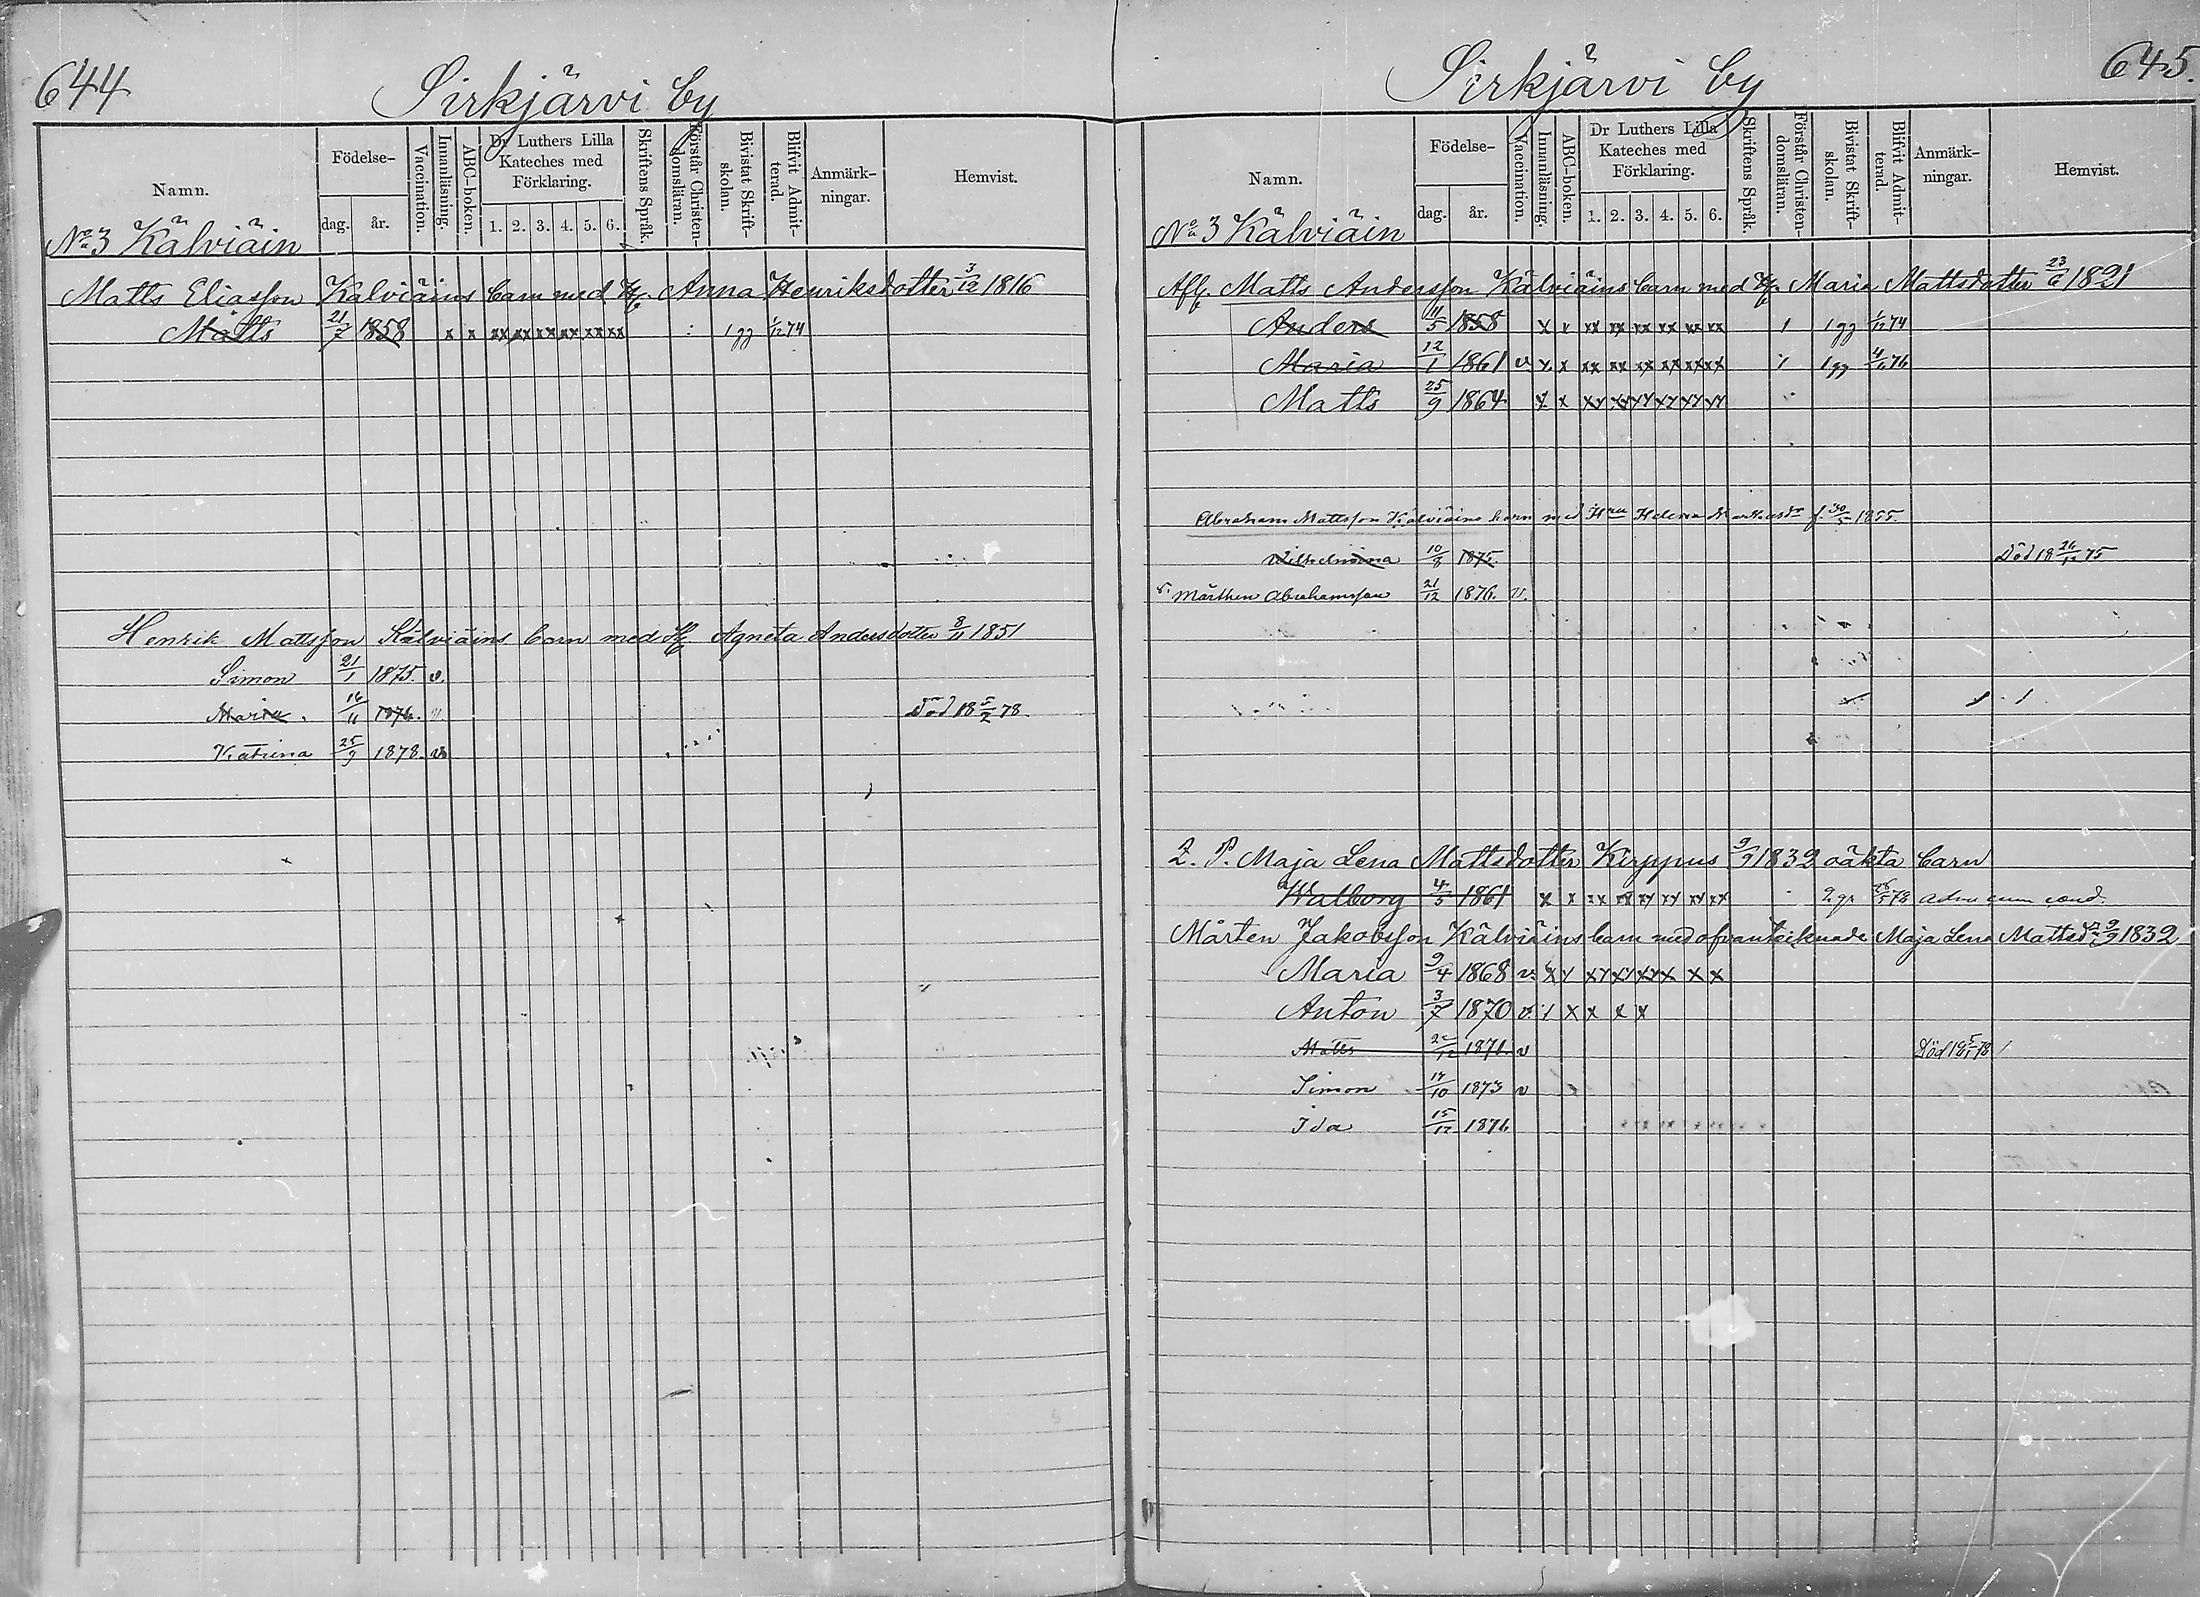 644
Sirkjärvi by
Namn.
Födelse-
dag.
år.
Vaccination.
Innanläsning.
ABC-boken.
Dr Luthers Lilla
Kateches med
Förklaring.
1. 2. 3. 4. 5. 6.
Skriftens Språk.
Förstår Christen-
domsläran.
Bivistat Skrift-
skolan.
Blifvit Admit-
terad.
Anmärk-
ningar.
Hemvist.
No 3 Kälviäin
Matts Eliasson Kälviäins barn med H. Anna Henriksdotter 3/12 1816
Matts 21/7 1858 x x xx xx xx xx xx xx 1 gg 1/12 74
Henrik Mattsson Kälviäins barn med H. Agneta Andersdotter 8/11 1851
Simon 21/1 1875. v.
Maria. 16/11 1876. v
Död 18 5/2 78.
Katrina 25/9 1878. v.
645.
Sirkjärvi by
Namn.
Födelse-
dag.
år.
Vaccination.
Innanläsning.
ABC-boken.
Dr Luthers Lilla
Kateches med
Förklaring.
1. 2. 3. 4. 5. 6.
Skriftens Språk.
Förstår Christen-
domsläran.
Bivistat Skrift-
skolan.
Blifvit Admit-
terad.
Anmärk-
ningar.
Hemvist.
No 3 Kälviäin
Matts Andersson Kälviäins barn med H. Maria Mattsdotter 23/6 1821
Anders 11/5 1858 x x xx xx xx xx xx xx 1 1 gg 1/12 74
Maria 12/1 1861 v x x xx xx xx xx xx xx 1 gg 76
Matts 25/9 1864 x x xx xx xx xx xx xx
Abraham Mattsson Kälviäins barn med Hru Helena f. 30/5 1855.
Wilhelmina 10/8 1875. Död 18 26/12 75
Mårthen Abrahamsson 21/12 1876. v.
2. P. Maja Lena Mattsdotter Kirppus 9/9 1832 oäkta barn
Walborg 4/5 1861 x x xx xx xx xx xx xx 2 gr 26/5 78 adm cum cond.
Mårten Jakobsson Kälviäins barn med ofvanteiknade Maja Lena Mattsdr 9/9 1832
Maria 9/4 1868 v. x x xx xx xx x x x
Anton 3/7 1870 v. 1 x x x x
Matts 22/12 1871. v Död 18 5/1 78
Simon 17/10 1873 v
Ida 15/12 1876